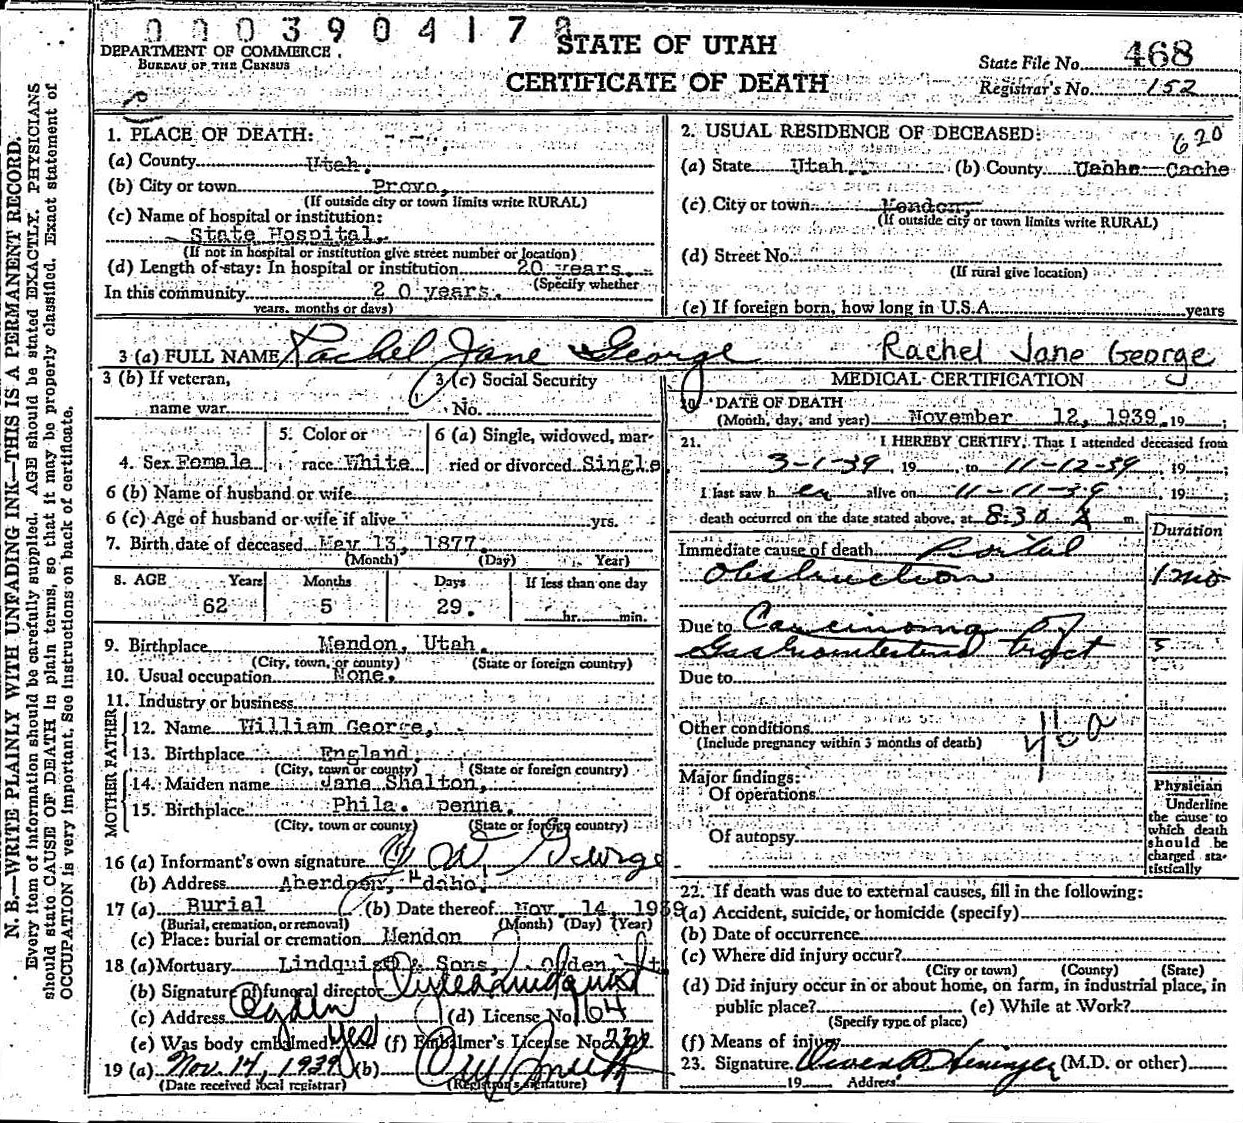 0000390417
STATE OF UTAH
DEPARTMENT OF COMMERCE
BUREAU OF THE CENSUS
CERTIFICATE OF DEATH
State File No. 468
Registrar's No. 152
N. B.—WRITE PLAINLY WITH UNFADING INK—THIS IS A PERMANENT RECORD.
Every item of information should be carefully supplied. AGE should be stated EXACTLY. PHYSICIANS
should state CAUSE OF DEATH in plain terms, so that it may be properly classified. Exact statement of
OCCUPATION is very important. See instructions on back of certificate.
1. PLACE OF DEATH:
(a) County Utah.
(b) City or town Provo,
(If outside city or town limits write RURAL)
(c) Name of hospital or institution:
State Hospital,
(If not in hospital or institution give street number or location)
(d) Length of stay: In hospital or institution 20 years.
(Specify whether
In this community 2 0 years.
years, months or days)
2. USUAL RESIDENCE OF DECEASED:
620
(a) State Utah. (b) County Cache
(c) City or town Mendon,
(If outside city or town limits write RURAL)
(d) Street No.
(If rural give location)
(e) If foreign born, how long in U.S.A. years
3 (a) FULL NAME Rachel Jane George Rachel Jane George
3 (b) If veteran,
name war
3 (c) Social Security
No.
4. Sex Female
5. Color or
race White
6 (a) Single, widowed, mar-
ried or divorced Single
6 (b) Name of husband or wife
6 (c) Age of husband or wife if alive yrs.
7. Birth date of deceased May 13, 1877.
(Month) (Day) Year)
8. AGE Years Months Days If less than one day
62 5 29. hr. min.
9. Birthplace Mendon, Utah.
(City, town, or county) (State or foreign country)
10. Usual occupation None.
11. Industry or business
FATHER
12. Name William George,
13. Birthplace England
(City, town or county) (State or foreign country)
MOTHER
14. Maiden name Jane Shelton,
15. Birthplace Phila. penna.
(City, town or county) (State or foreign country)
16 (a) Informant's own signature W George
(b) Address Aberdeen, Idaho.
17 (a) Burial (b) Date thereof Nov. 14, 1939
(Burial, cremation, or removal) (Month) (Day) (Year)
(c) Place: burial or cremation Mendon
18 (a) Mortuary Lindquist & Sons, Ogden Ut
(b) Signature of funeral director Lindquist
(c) Address Ogden (d) License No. 164
(e) Was body embalmed? Yes (f) Embalmer's License No.
19 (a) Nov. 14, 1939 (b)
(Date received local registrar) (Registrar's signature)
MEDICAL CERTIFICATION
20. DATE OF DEATH
(Month, day, and year) November 12, 1939. 19 ;
21. I HEREBY CERTIFY, That I attended deceased from
3-1-39 , 19 , to 11-12-39 , 19 ;
I last saw h er alive on 11-11-39 , 19 ;
death occurred on the date stated above, at 8:30 A m.
Duration
Immediate cause of death Portal
Obstruction 1 mo
Due to Carcinoma of
Gastrointestinal tract 5
Due to
Other conditions 46a
(Include pregnancy within 3 months of death)
Major findings:
Of operations
Of autopsy
Physician
Underline
the cause to
which death
should be
charged sta-
tistically
22. If death was due to external causes, fill in the following:
(a) Accident, suicide, or homicide (specify)
(b) Date of occurrence
(c) Where did injury occur?
(City or town) (County) (State)
(d) Did injury occur in or about home, on farm, in industrial place, in
public place? (e) While at Work?
(Specify type of place)
(f) Means of injury
23. Signature Owen (M.D. or other)
19 Address